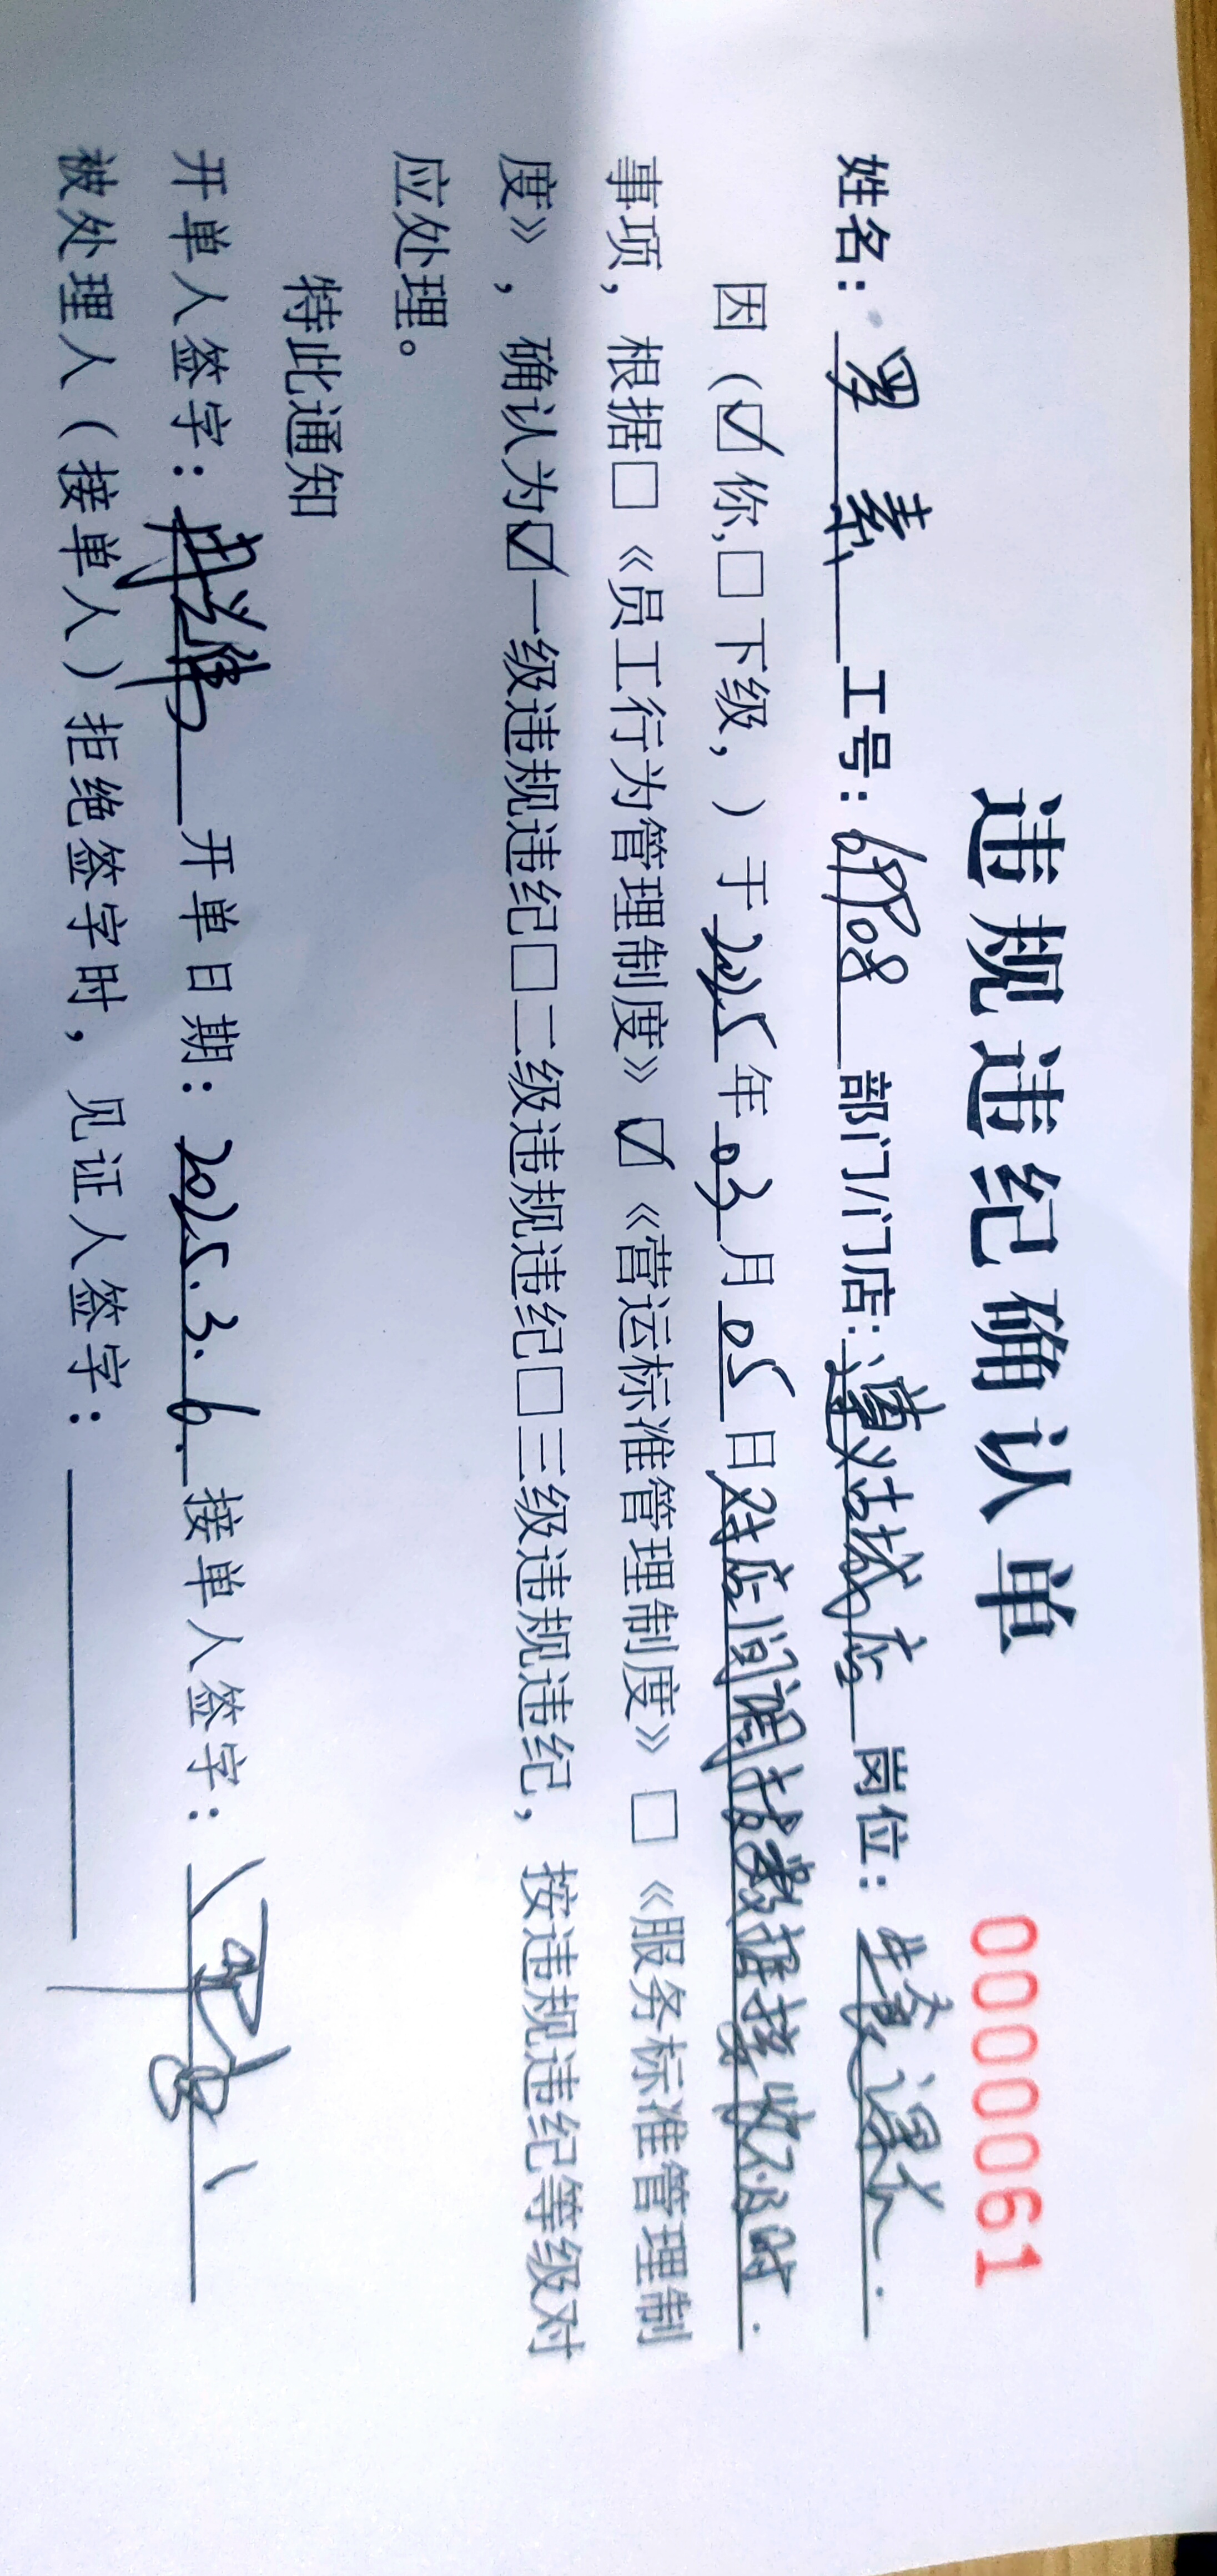 违规违纪确认单 0000061
姓名： 工号： 部门/门店：遵义古城店 岗位：
因（☑你,□下级，）于2025年03月05日对店间调拨数据接收不及时.
事项，根据□《员工行为管理制度》☑《营运标准管理制度》□《服务标准管理制
度》，确认为☑一级违规违纪□二级违规违纪□三级违规违纪，按违规违纪等级对
应处理。
特此通知
开单人签字： 开单日期：2025.3.6. 接单人签字：
被处理人（接单人）拒绝签字时，见证人签字：